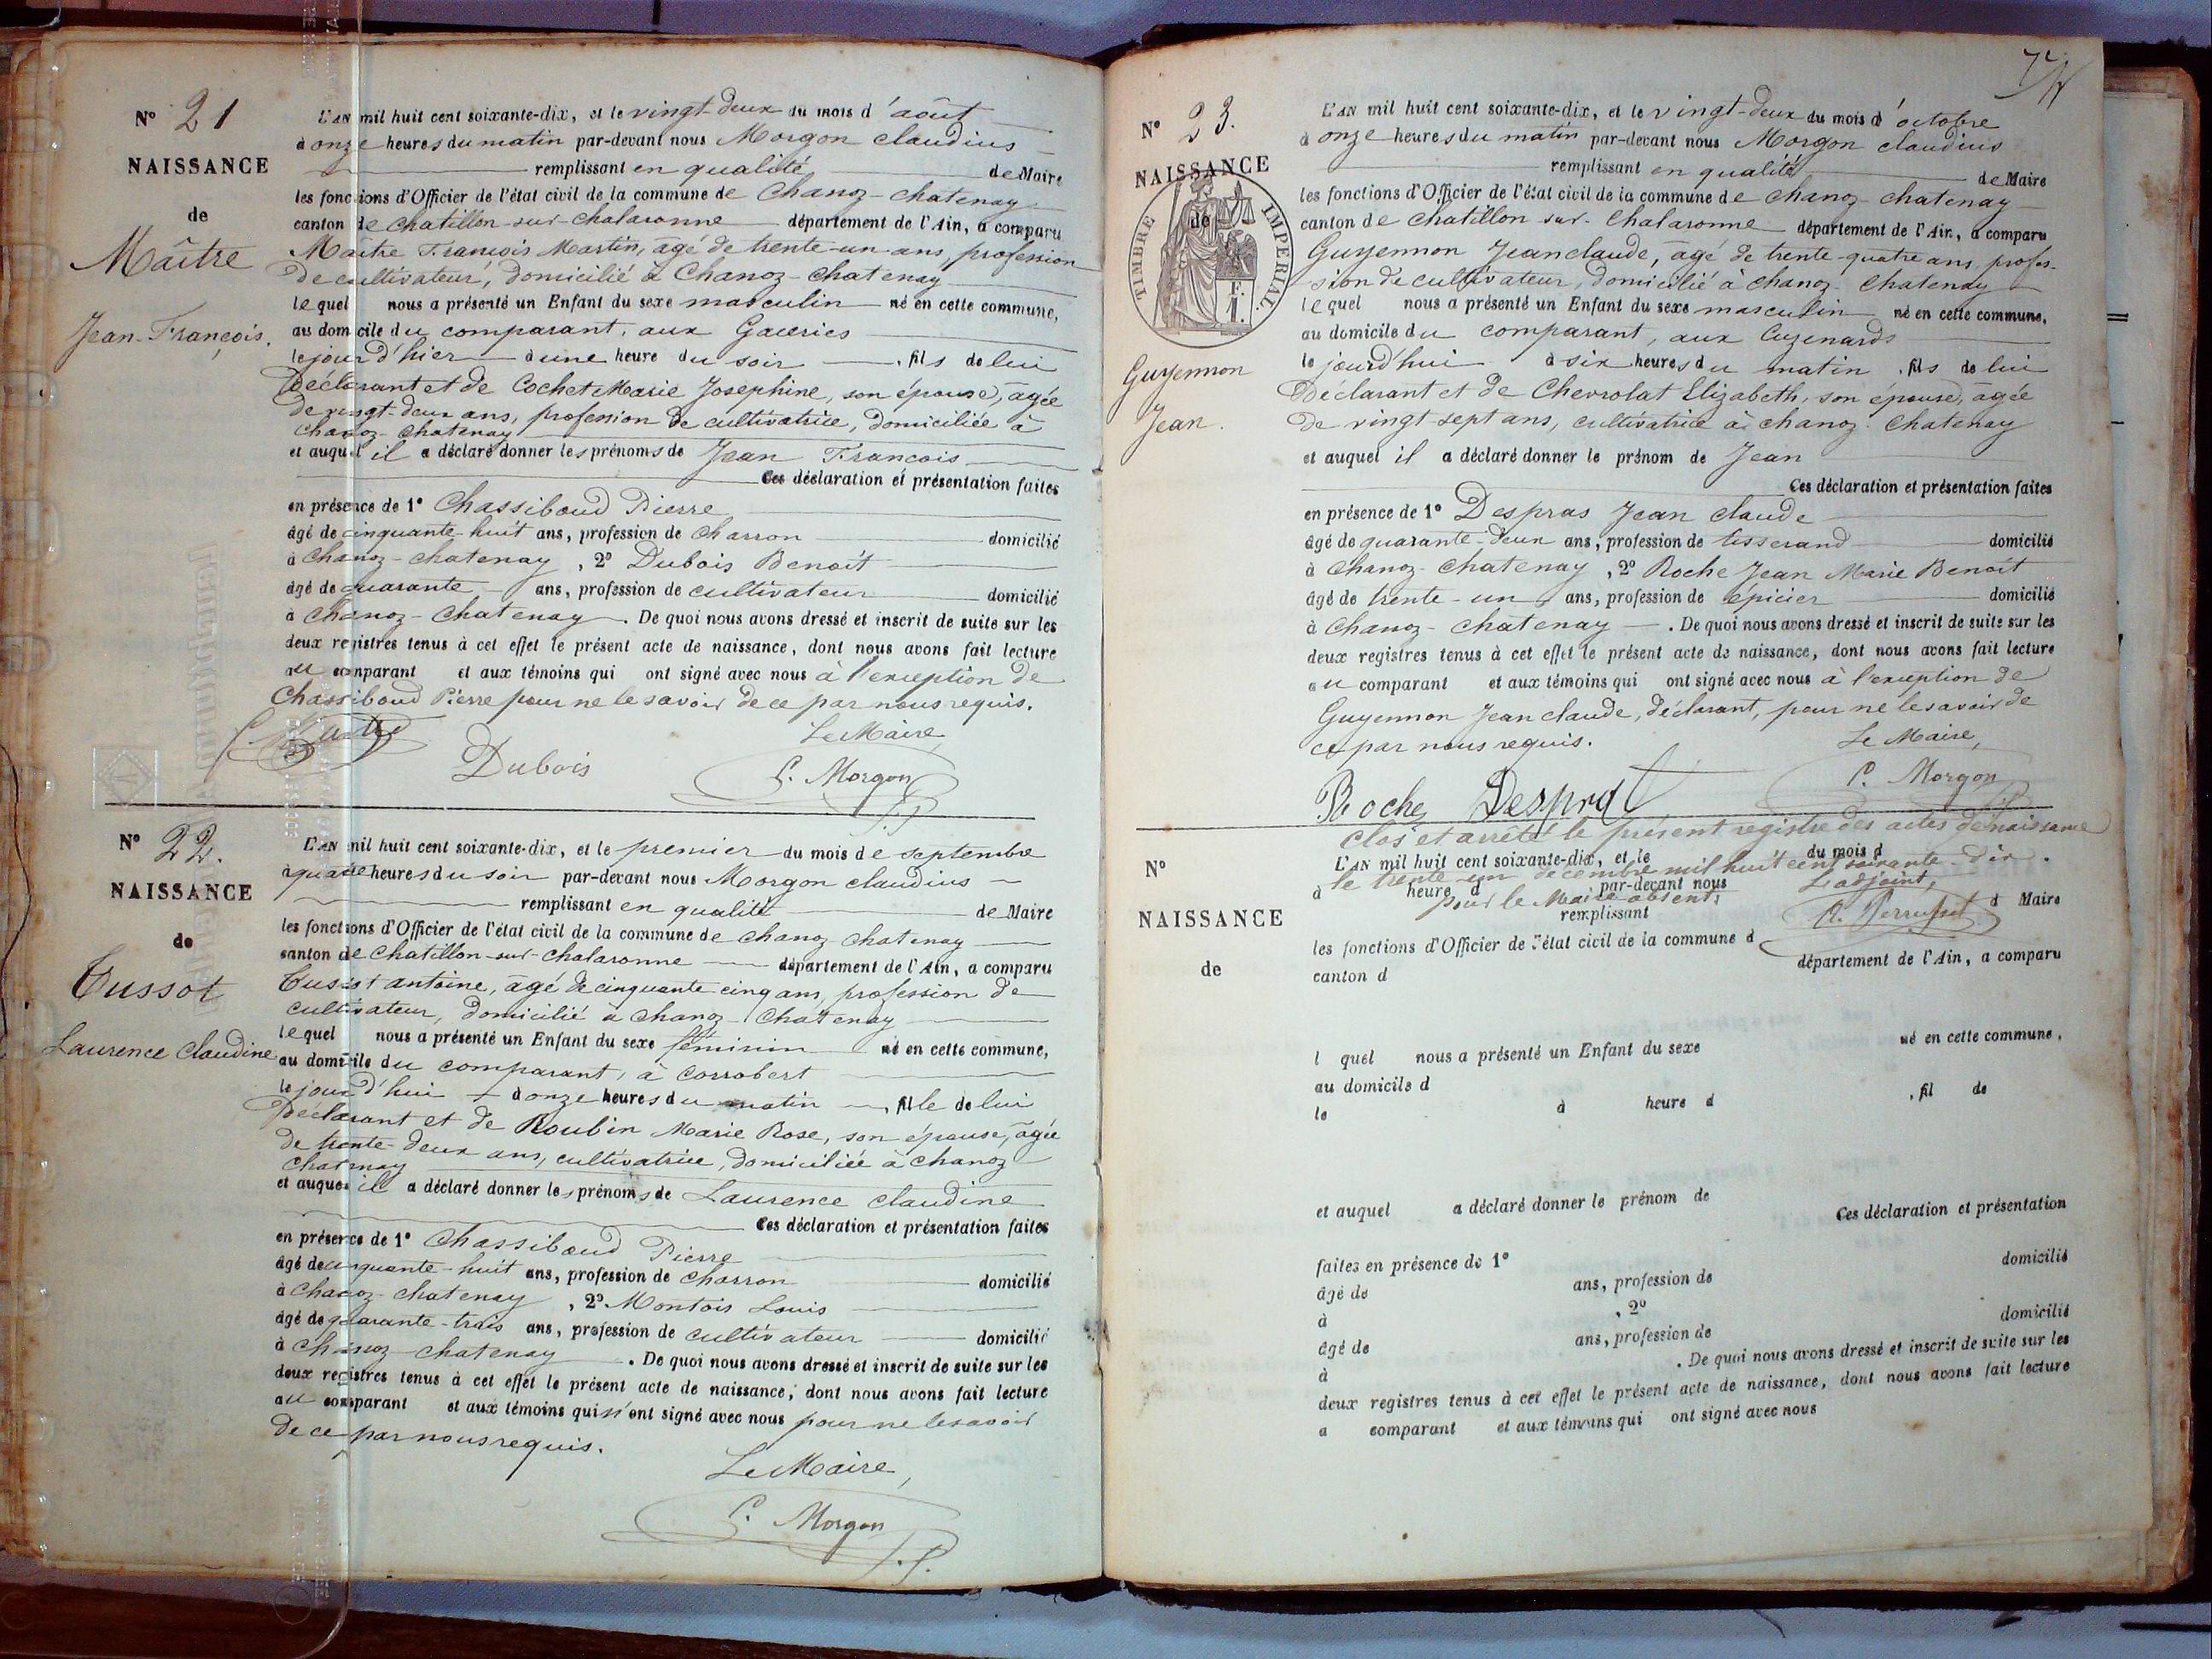 N° 21
NAISSANCE
de
Maître
Jean-François.
L'AN mil huit cent soixante-dix, et le vingt-deux du mois d'août
à onze heures du matin par-devant nous Morgon claudius
remplissant en qualité de Maire
les fonctions d'Officier de l'état civil de la commune de Chanoz-chatenay
canton de chatillon-sur-chalaronne département de l'Ain, a comparu
Maitre François Martin, âgé de trente-un ans, profession
de cultivateur, domicilié à Chanoz-chatenay
lequel nous a présenté un Enfant du sexe masculin né en cette commune,
au domicile du comparant, aux
le jour d'hier à une heure du soir, fils de lui
Déclarant et de Cochet Marie Josephine, son épouse, âgée
de vingt-deux ans, profession de cultivatrice, domiciliée à
chanoz-chatenay
et auquel il a déclaré donner les prénoms de Jean François
Ces déclaration et présentation faites
en présence de 1° Chassiboud Pierre
âgé de cinquante-huit ans, profession de charron domicilié
à Chanoz-chatenay, 2° Dubois Benoît
âgé de quarante ans, profession de cultivateur domicilié
à Chanoz-chatenay. De quoi nous avons dressé et inscrit de suite sur les
deux registres tenus à cet effet le présent acte de naissance, dont nous avons fait lecture
au comparant et aux témoins qui ont signé avec nous à l'exception de
Chassiboud Pierre pour ne le savoir de ce par nous requis.
Le Maire,
Dubois
C. Morgon
N° 22.
NAISSANCE
de
Cussot
Laurence Claudine
L'AN mil huit cent soixante-dix, et le premier du mois de septembre
à quatre heures du soir par-devant nous Morgon claudius
remplissant en qualité de Maire
les fonctions d'Officier de l'état civil de la commune de chanoz chatenay
canton de Chatillon-sur-chalaronne département de l'Ain, a comparu
Cussot antoine, âgé de cinquante cinq ans, profession de
cultivateur, domicilié à chanoz-chatenay
lequel nous a présenté un Enfant du sexe féminin né en cette commune,
au domicile du comparant, à Corrobert
le jourd'hui à onze heures du matin, fille de lui
Déclarant et de Roubin Marie Rose, son épouse, âgée
de trente-deux ans, cultivatrice, domiciliée à chanoz
chatenay
et auquel il a déclaré donner les prénoms de Laurence claudine
Ces déclaration et présentation faites
en présence de 1° Chassiboud Pierre
âgé de cinquante-huit ans, profession de charron domicilié
à Chanoz-chatenay, 2° Montois Louis
âgé de quarante-trois ans, profession de cultivateur domicilié
à Chanoz-chatenay. De quoi nous avons dressé et inscrit de suite sur les
deux registres tenus à cet effet le présent acte de naissance, dont nous avons fait lecture
au comparant et aux témoins qui n'ont signé avec nous pour ne le savoir
de ce par nous requis.
Le Maire,
C. Morgon
N° 23.
NAISSANCE
de
TIMBRE IMPERIAL
Guyennon
Jean.
L'AN mil huit cent soixante-dix, et le vingt-deux du mois d'octobre
à onze heures du matin par-devant nous Morgon claudius
remplissant en qualité de Maire
les fonctions d'Officier de l'état civil de la commune de chanoz-chatenay
canton de chatillon-sur-chalaronne département de l'Ain, a comparu
Guyennon Jean claude, âgé de trente-quatre ans, profes-
sion de cultivateur, domicilié à chanoz-Chatenay
lequel nous a présenté un Enfant du sexe masculin né en cette commune,
au domicile du comparant, aux Cuzenards
le jourd'hui à six heures du matin, fils de lui
Déclarant et de Chevrolat Elizabeth, son épouse, âgée
de vingt-sept ans, cultivatrice à chanoz-Chatenay
et auquel il a déclaré donner le prénom de Jean
Ces déclaration et présentation faites
en présence de 1° Despras Jean claude
âgé de quarante-deux ans, profession de tisserand domicilié
à Chanoz-Chatenay, 2° Roche Jean Marie Benoît
âgé de trente-un ans, profession de épicier domicilié
à Chanoz-Chatenay. De quoi nous avons dressé et inscrit de suite sur les
deux registres tenus à cet effet le présent acte de naissance, dont nous avons fait lecture
au comparant et aux témoins qui ont signé avec nous à l'exception de
Guyennon Jean claude, déclarant, pour ne le savoir de
ce par nous requis.
Le Maire,
C. Morgon
Roche Despra
clos et arrêté le présent registre des actes de naissance
le trente-un décembre mil huit cent soixante-dix.
pour le Maire absent,
L'adjoint,
N°
NAISSANCE
de
L'AN mil huit cent soixante-dix, et le du mois d
à heure d par-devant nous
remplissant d Maire
les fonctions d'Officier de l'état civil de la commune d
canton d département de l'Ain, a comparu
l quel nous a présenté un Enfant du sexe né en cette commune,
au domicile d
le à heure d, fil de
et auquel a déclaré donner le prénom de
Ces déclaration et présentation
faites en présence de 1°
âgé de ans, profession de domicilié
à , 2°
âgé de ans, profession de domicilié
à . De quoi nous avons dressé et inscrit de suite sur les
deux registres tenus à cet effet le présent acte de naissance, dont nous avons fait lecture
a comparant et aux témoins qui ont signé avec nous